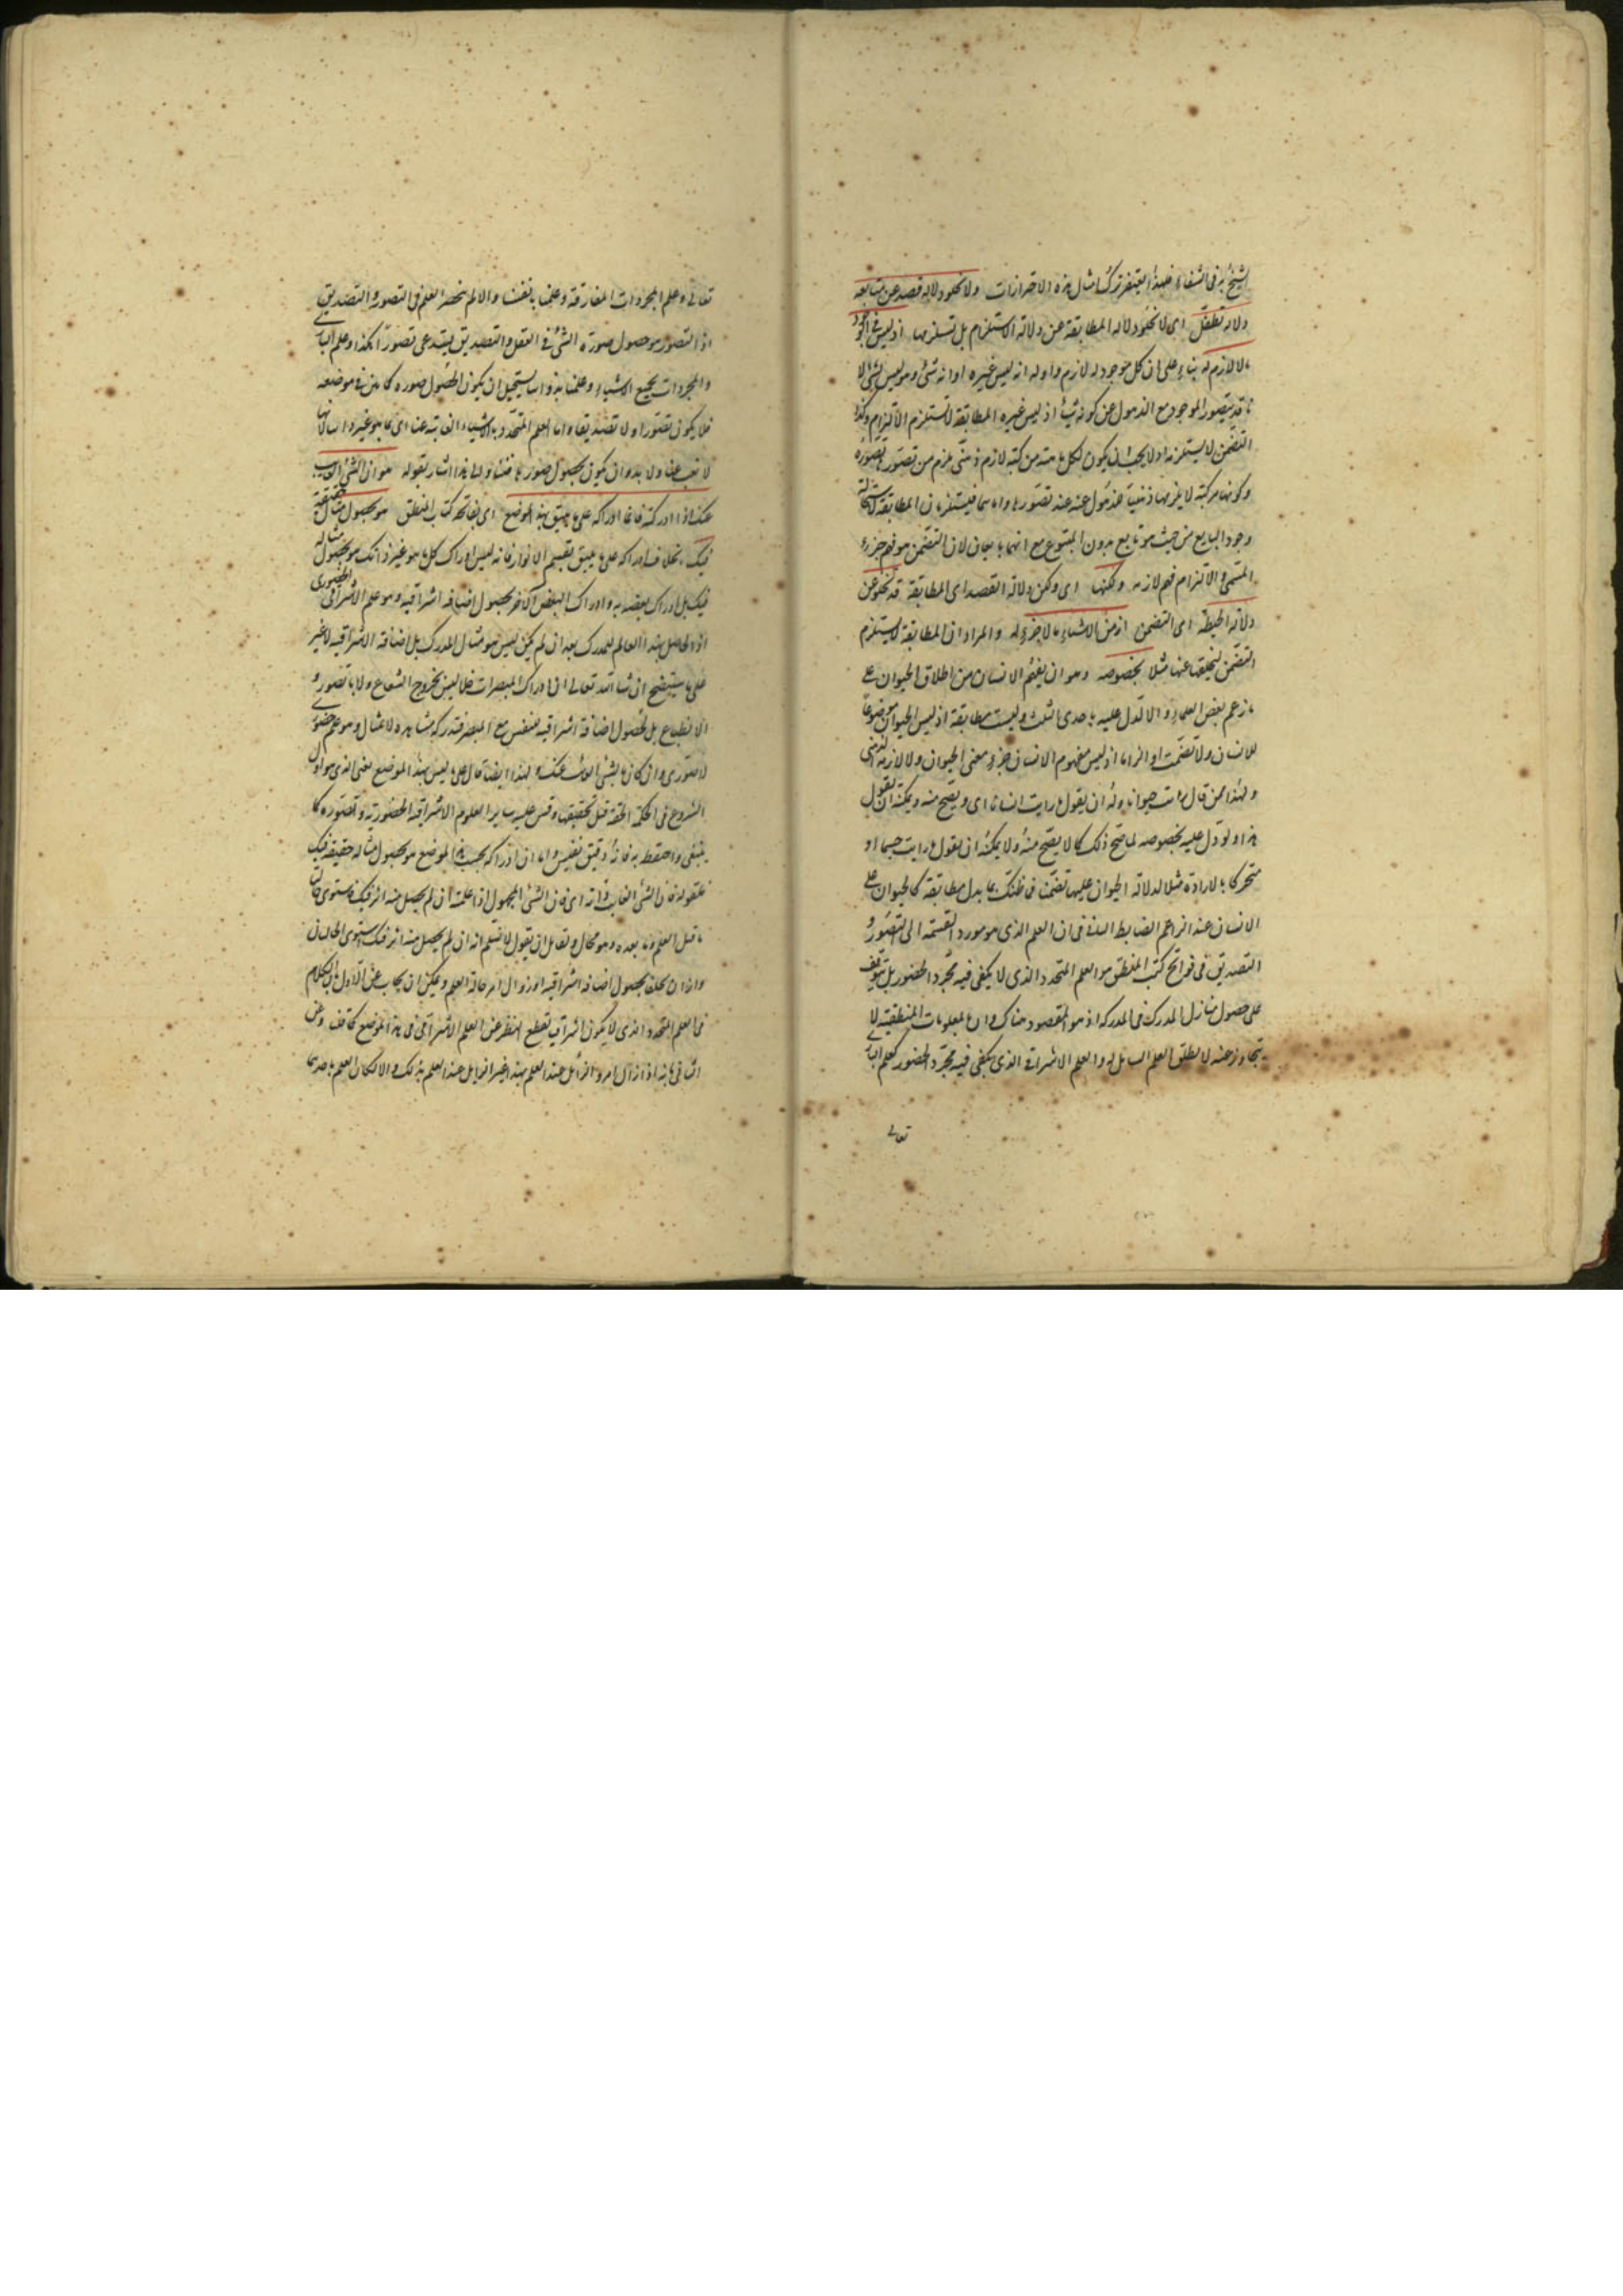 الشيخ به فى الشفاء فلهذا يغتفر ترك امثال هذه الاحترازات ولا تخلو دلالة قصد عن متابعة
دلالة تطفل اى لا تخلو دلالة المطابقة عن دلالة الالتزام بل تستلزمها اذ ليس فى الوجود
ما لا لازم له بناء على ان كل موجود له لازم واوله انه ليس غيره او انه شئ وهو ليس بشئ لانا
قد نتصور الموجود مع الذهول عن كونه شيئا اذ ليس غيره المطابقة لا تستلزم الالتزام وكذا
التضمن لا يستلزمه اذ لا يجب ان يكون لكل ماهية مركبة لازم ذهنى يلزم من تصورها تصوره
وكونها مركبة لا يلزمها ذهنيا للذهول عنه عند تصورها واما هما فيستلزمان المطابقة لاستحالة
وجود التابع من حيث هو تابع بدون المتبوع مع انهما تابعان لان التضمن هو فهم جزء
المسمى والالتزام فهم لازمه ولكنها اى ولكن دلالة القصد اى المطابقة قد تخلو عن
دلالة الحيطة اى التضمن اذ من الاشياء ما لا جزء له والمراد ان المطابقة لا تستلزم
التضمن لتخلفه عنها مثلا بخصوصه وهو ان يفهم الانسان من اطلاق الحيوان على
ما زعم بعض العلماء والا لدل عليه باحدى الثلث وليست مطابقة اذ ليس الحيوان موضوعا
للانسان ولا تضمنا او التزاما اذ ليس مفهوم الانسان جزء معنى الحيوان ولا لازمه الذهنى
ولهذا من قال رايت حيوانا فله ان يقول ما رايت انسانا اى ويصح منه ويمكنه ان يقول
هذا ولو دل عليه بخصوصه لما صح ذلك كما لا يصح منه ولا يمكنه ان يقول ما رايت جسما او
متحركا بالارادة مثلا لدلالة الحيوان عليها تضمنا فما ظنك بما يدل مطابقة كالحيوان على
الانسان عند الزاعم الضابط الثانى فى ان العلم الذى هو مورد القسمة الى التصور و
التصديق فى فواتح كتب المنطق هو العلم المتجدد الذى لا يكفى فيه مجرد الحضور بل يتوقف
على حصول مثال المدرك فى المدرك اذ هو المقصود هناك وان المعلومات المنطقية لا
يتجاوز عنه لا مطلق العلم الشامل له وللعلم الاشراقى الذى يكفى فيه مجرد الحضور كعلم البارى
تعالى
تعالى وعلم المجردات المفارقة وعلمنا بانفسنا والا لم ينحصر العلم فى التصور والتصديق
اذ التصور هو حصول صورة الشئ فى العقل والتصديق يستدعى تصورا هكذا وعلم البارى
والمجردات بجميع الاشياء وعلمنا بذواتنا يستحيل ان يكون بحصول صورة كما بين فى موضعه
فلا يكون تصورا ولا تصديقا واما العلم المتجدد بالاشياء الغائبة عنا اى ما هو غير ذواتنا لانها
لا تغيب عنا ولا بد وان يكون بحصول صورها فينا ولما هذا اشار بقوله هو ان الشئ الغائب
عنك اذا ادركته فانما ادراكه على ما يليق بهذا الموضع اى بفاتحة كتب المنطق هو بحصول مثال حقيقته
فيك بخلاف ادراكه على ما يليق بقسم الانوار فانه ليس ادراك كل ما هو غير ذاتك هو بحصول مثاله
فيك بل ادراك بعضه به وادراك البعض الآخر بحصول اضافة اشراقية وهو علم الاشراقى الحضورى
اذ الحاصل بهذا العالم للمدرك بعد ان لم يكن ليس هو مثال المدرك بل اضافة الاشراقية لا غير
على ما سيتضح ان شاء الله تعالى ان ادراك المبصرات مثلا ليس بخروج الشعاع ولا بانطباع تصور و
الانطباع بل بحصول اضافة اشراقية للنفس مع المبصر فتدركه مشاهدة لا بمثال وهو علم حضورى
لا صورى وان كان بالشئ الغائب عنك ولهذا ايضا قال على ما يليق بهذا الموضع يعنى الذى هو اول
الشروع فى الحكمة الحقة قبل تحقيقها وقس عليه سائر العلوم الاشراقية الحضورية وتصوره كما
ينبغى واحتفظ به فانه دقيق نفيس واما ان ادراكه بحسب هذا الموضع هو بحصول مثاله حقيقته فيك
فلقوله فان الشئ الغائب ذاته اى فان الشئ المجهول اذا علمته ان لم يحصل منه اثر فيك فاستوى حالتا
ما قبل العلم وما بعده وهو محال ولقائل ان يقول لا نسلم انه ان لم يحصل منه اثر فيك استوى الحالتان
وانما يكون كذلك بحصول اضافة اشراقية او زوال امر حالة العلم ويمكن ان يجاب عن الاول بان الكلام
فى العلم المتجدد الذى لا يكون اشراقيا بقطع النظر عن العلم الاشراقى فى هذا الموضع كما قف وعن
الثانى بانه اذا زال امر والزائل عند العلم بهذا غير الزائل عند العلم بذلك والا لكان العلم باحدهما